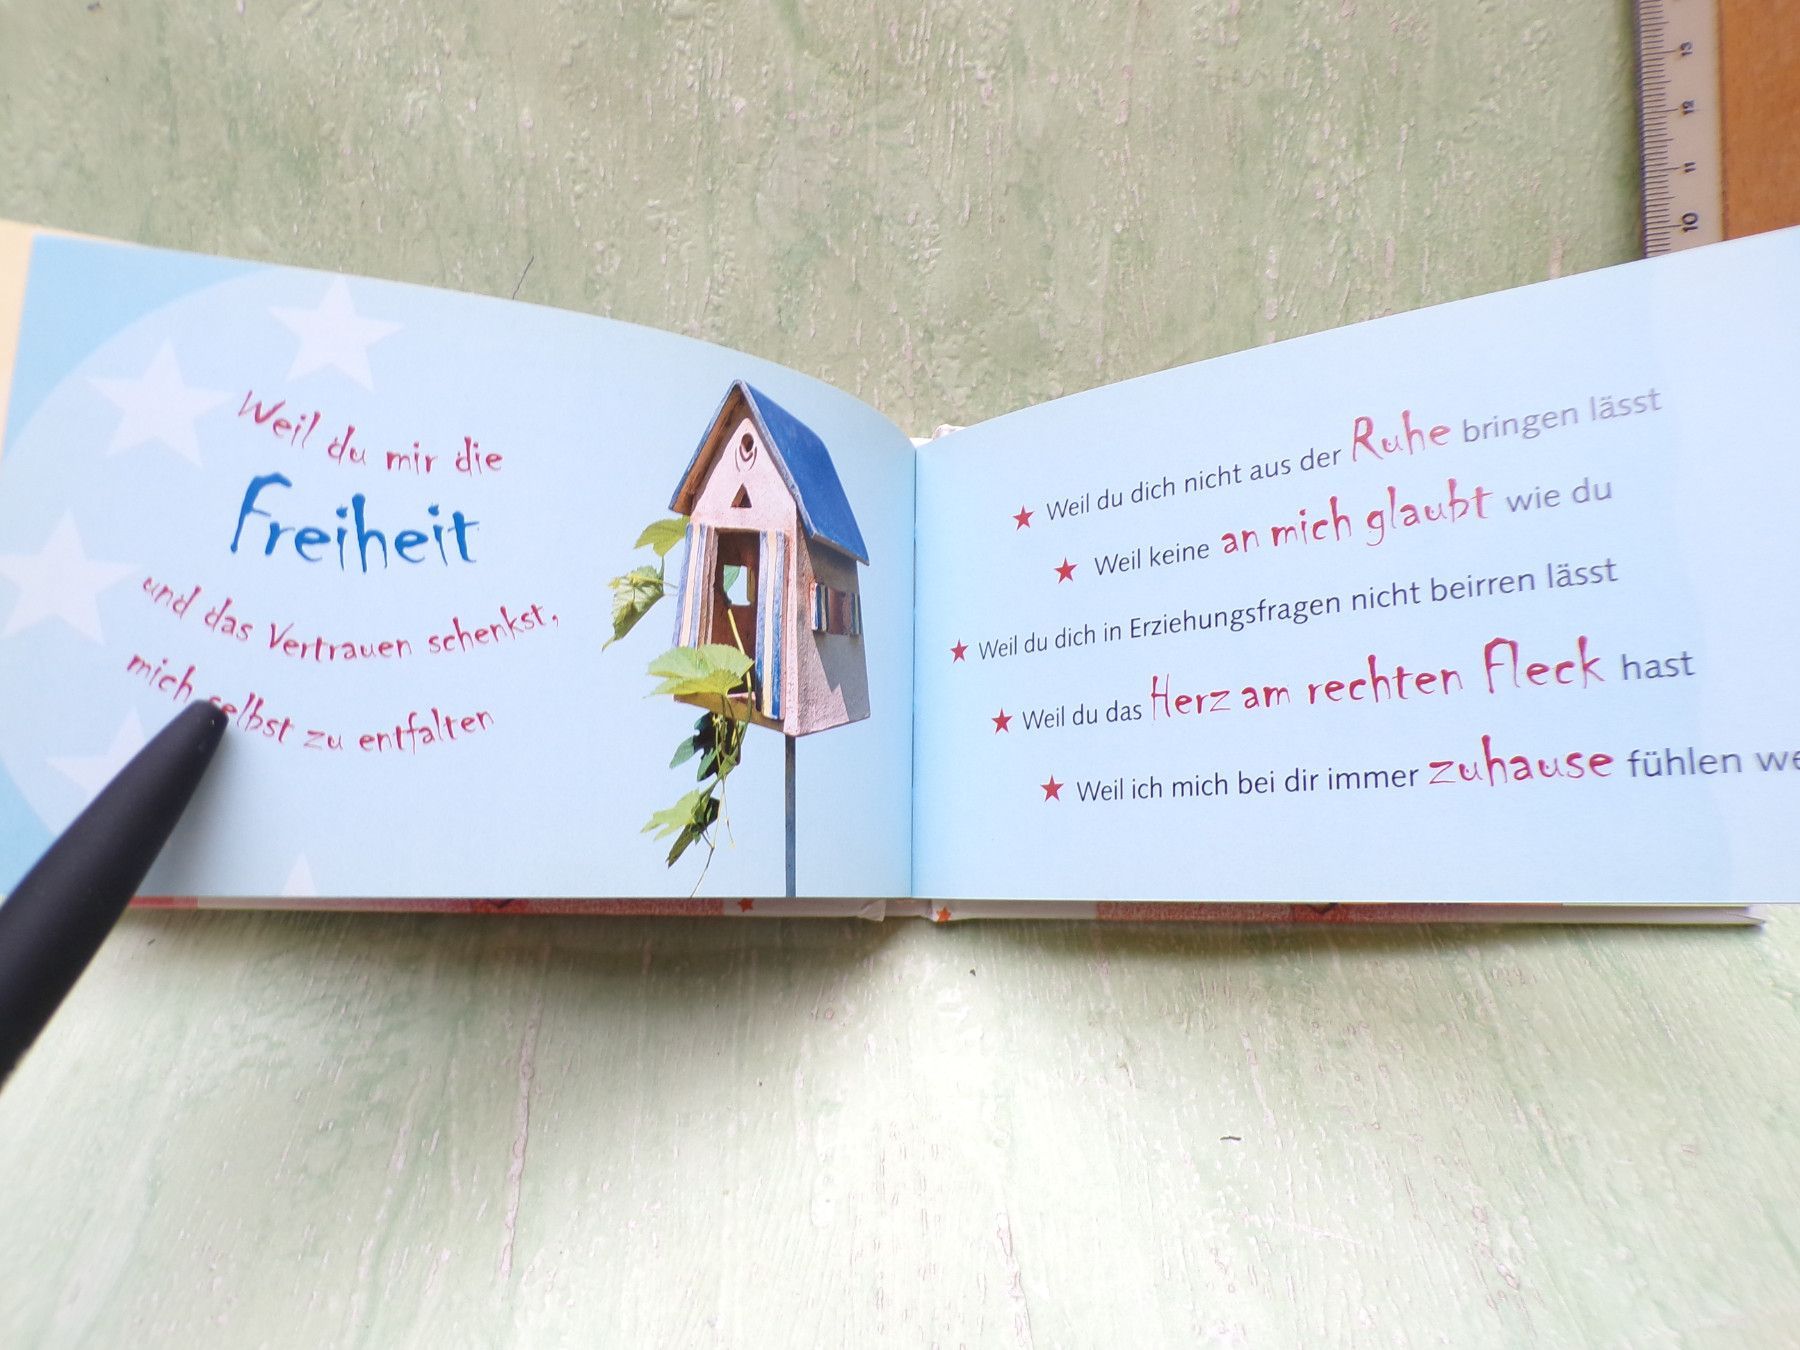 Weil du mir die
Freiheit
und das Vertrauen schenkst,
mich selbst zu entfalten
Weil du dich nicht aus der Ruhe bringen lässt
Weil keine an mich glaubt wie du
Weil du dich in Erziehungsfragen nicht beirren lässt
Weil du das Herz am rechten Fleck hast
Weil ich mich bei dir immer zuhause fühlen
13
12
11
10